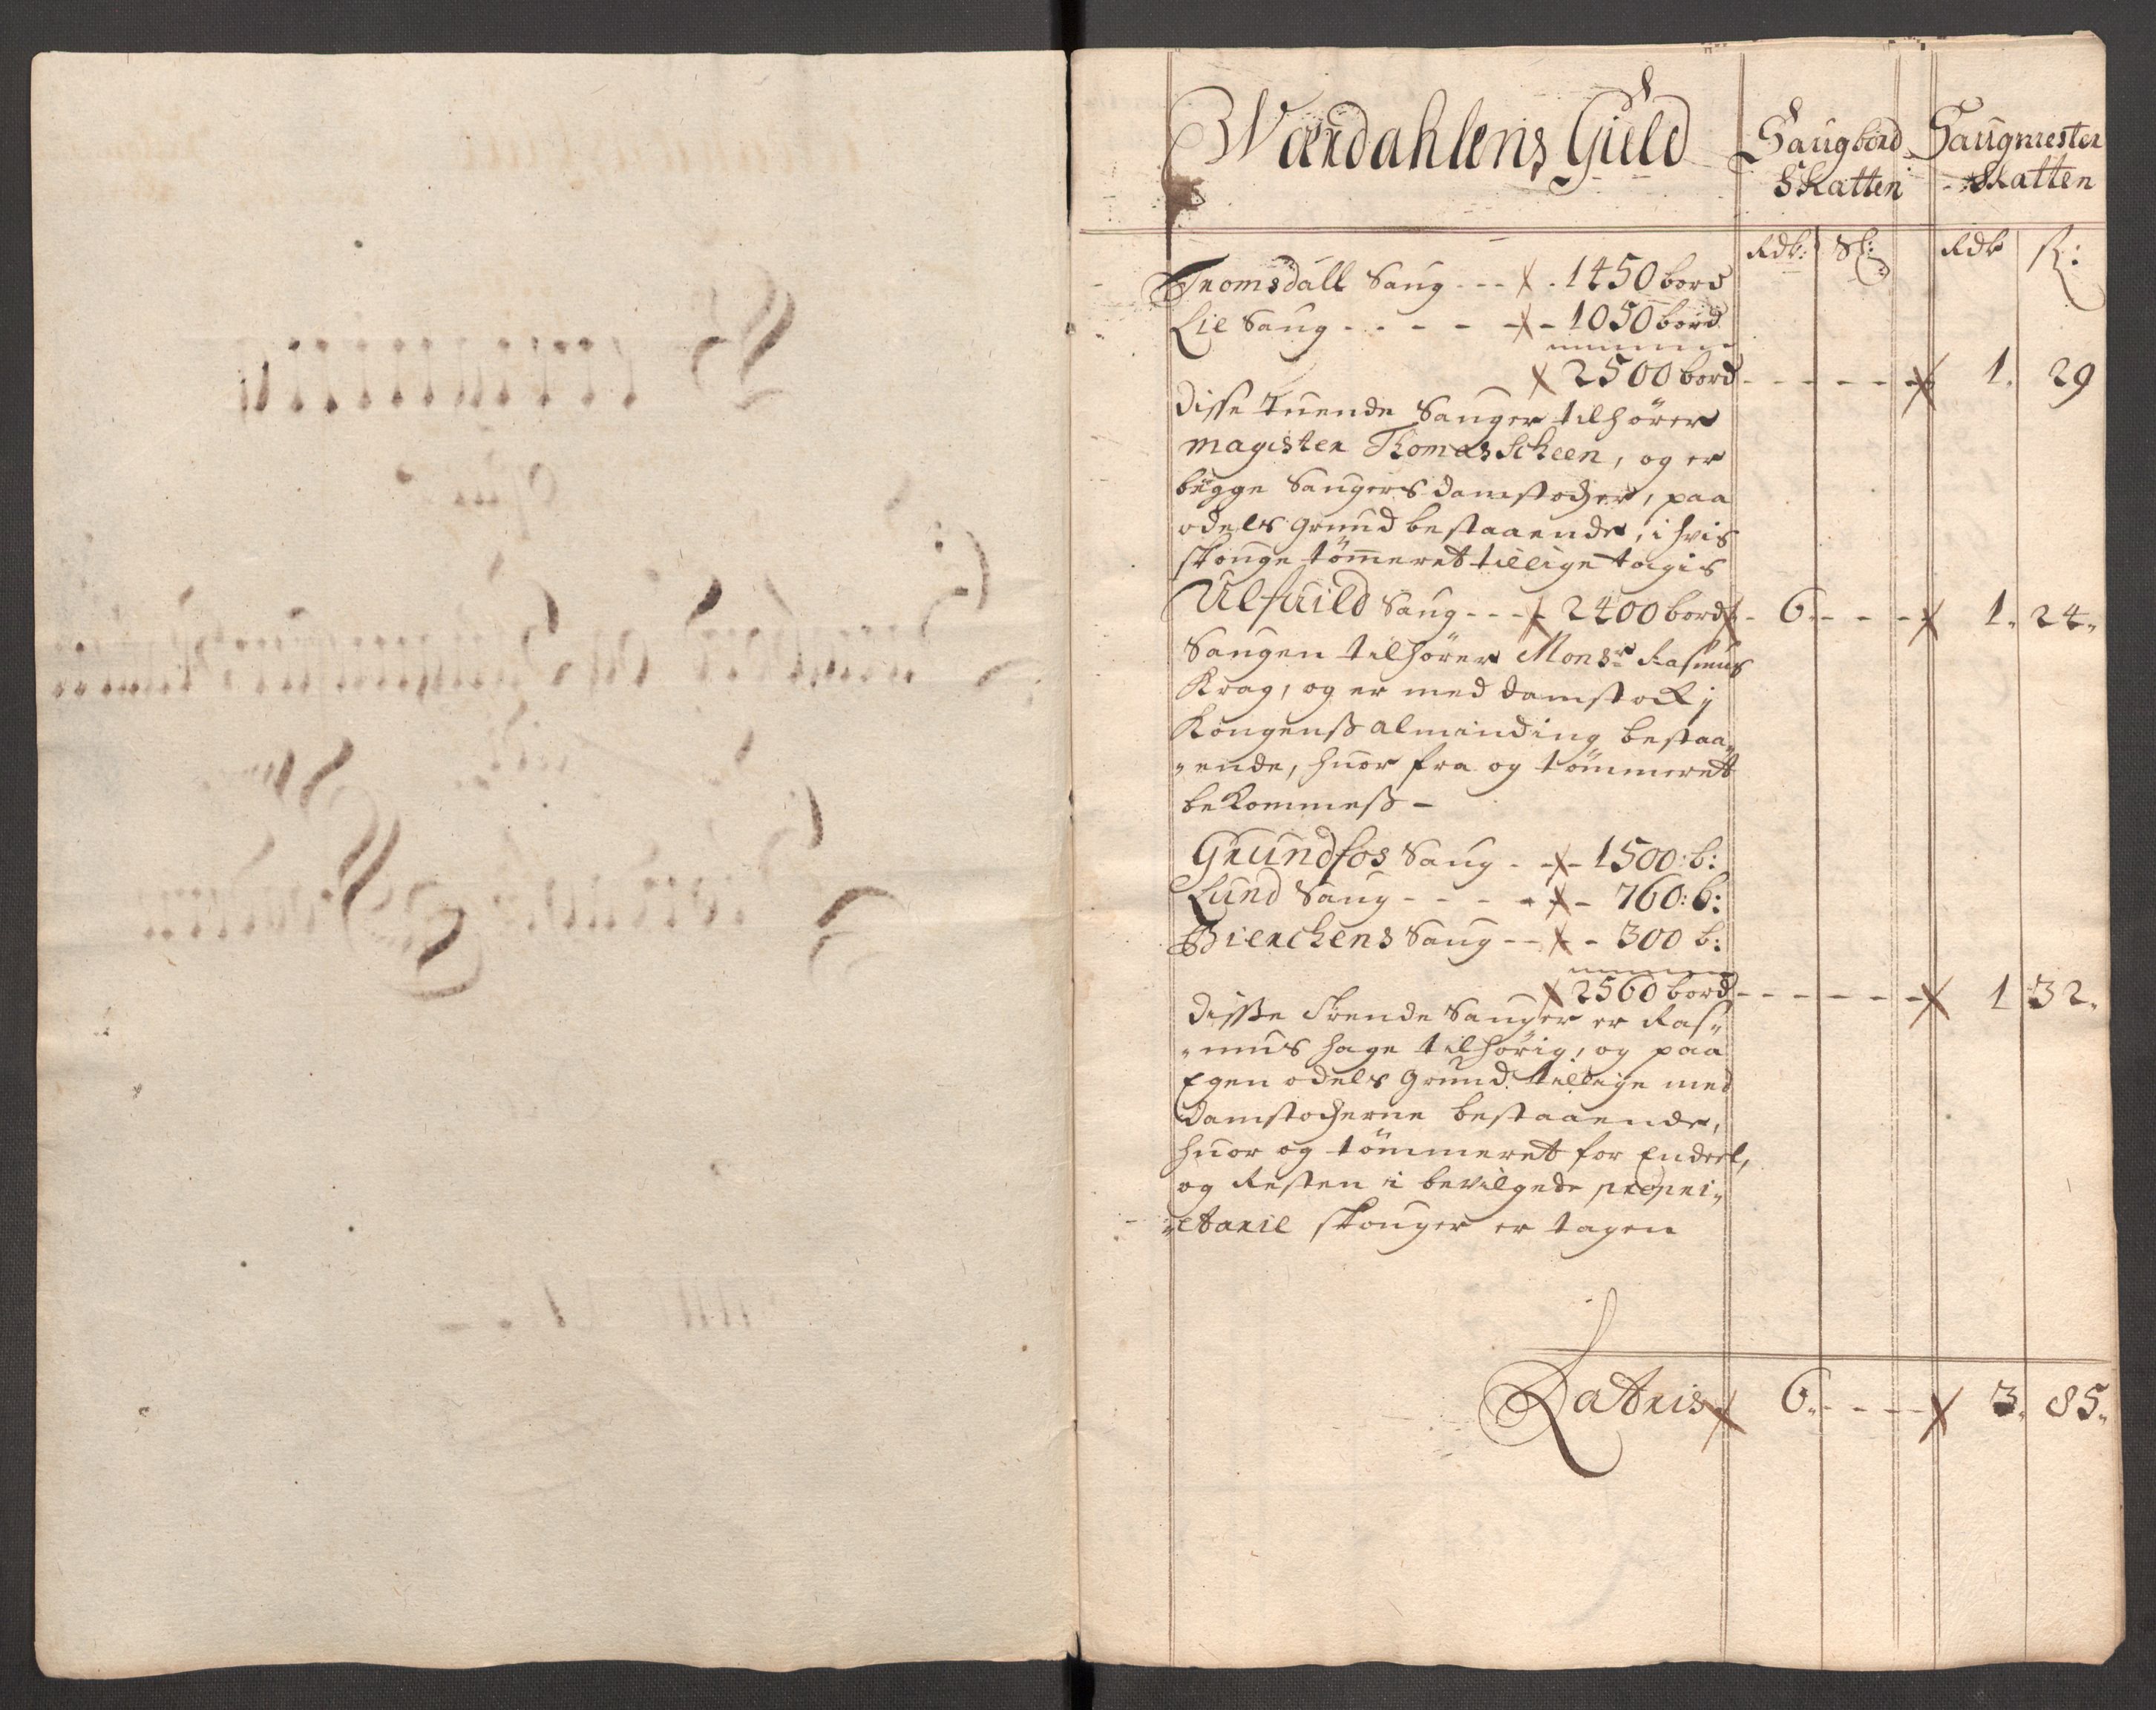 Værdahlens Gield
Saugbord Skatten
Saugmester Skatten
Rdlr: sk: Rdlr sk:
Tromsdall Saug - - - 1450 bord
Lie Saug - - - - - 1050 bord
2500 bord - - - - - 1. 29
Disse tuende Sauger tilhörer
Magister Thomas Scheen, og er
begge Saugers damstocher, paa
odels grund bestaaende, i hvis
skouge tömmeret tillige tagis
Ulfuild Saug - - - 2400 bord - 6. - - - 1. 24.
Saugen tilhörer Monsr Rasmus
Krag, og er med damstock j
Kongenß alminding bestaa„
„ende, huor fra og tömmeret
bekommeß -
Grundfos Saug - - 1500: b:
Lund Saug - - - - - 760: b:
Bierchens Saug - - - 300 b:
2560 bord - - - - - 1 32.
Disse trende Sauger er Ras„
„mus Hage tilhörig, og paa
Egen odels Grund tillige med
damstocherne bestaaende,
huor og tömmeret for Endeel,
og Resten i bevilgede propri„
„etarie skouger er tagen
Lateris 6. - - - 3. 85.